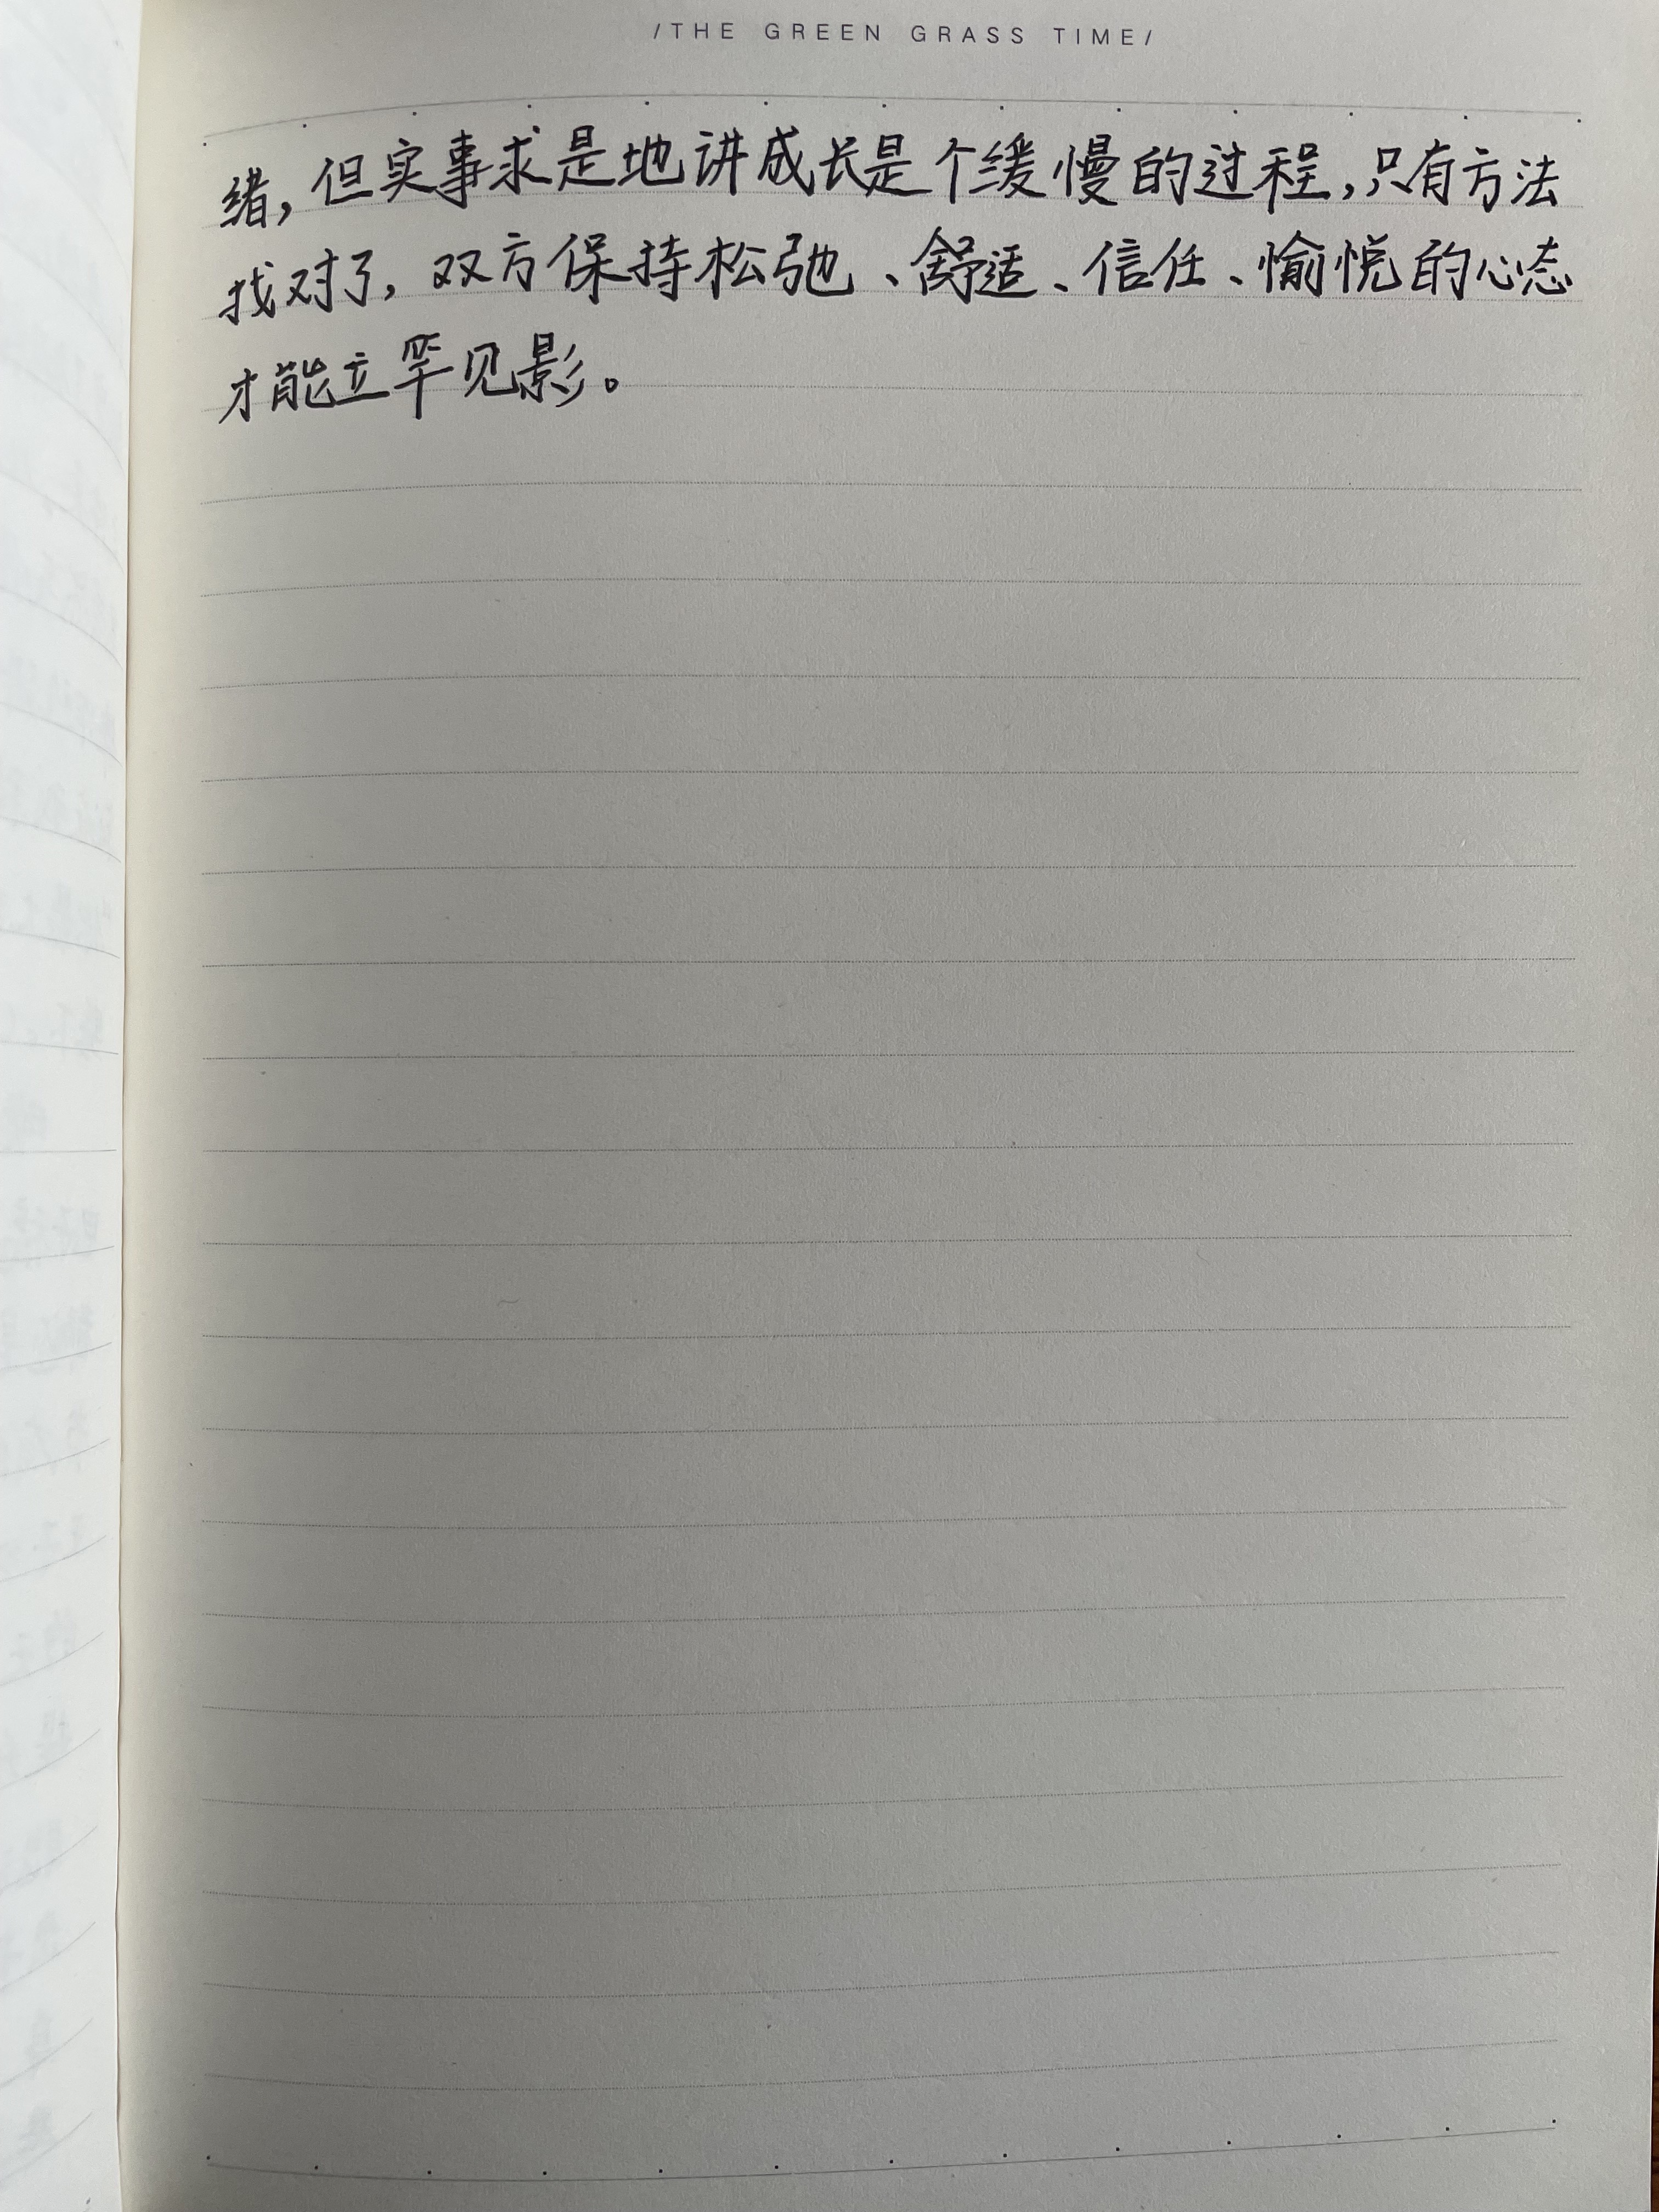 /THE GREEN GRASS TIME/
绪，但实事求是地讲成长是个缓慢的过程，只有方法
找对了，双方保持松弛、舒适、信任、愉悦的心态
才能立罕见影。